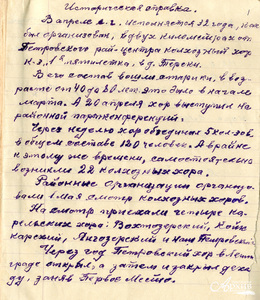 Историческая справка
1
В апреле с.г. исполняется 32 года, как
был организован, в двух километрах от
Петровского рай-центра колхозный хор
к-з, 1я пятилетка, в д. Терехи.
В его состав вошли старики, в воз-
расте от 40 до 70 лет. Это было в начале
марта. А 20 апреля хор выступил на
районной партконференции.
Через неделю хор объединил 5 колхозов,
в общем составе 120 человек. А в районе
к этому же времени, самостоятельно
возникли 22 колхозных хора.
Районные организации организо-
вали 1 мая смотр колхозных хоров.
На смотр приехали четыре ка-
рельских хора: Вохтозерский, Койка
карский, Лычозерский и наш Петровский
Через год Петровский хор в Ленин
граде открыл, а затем и закрыл декa
ду, заняв Первое Место.